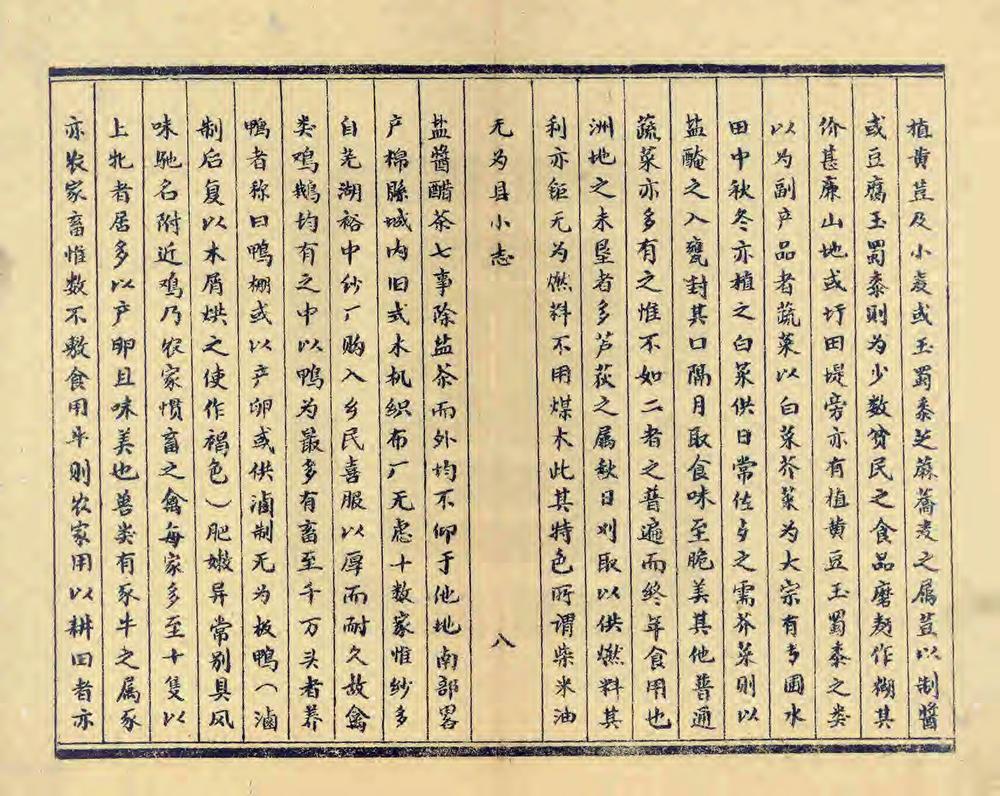 植黄荳及小麦或玉蜀黍芝蔴蕎麦之属荳以制醬
或豆腐玉蜀黍则为少数贫民之食品磨麪作糊其
价甚廉山地或圩田堤旁亦有植黄豆玉蜀黍之类
以为副产品者蔬菜以白菜芥菜为大宗有于圃水
田中秋冬亦植之白菜供日常佐歺之需芥菜则以
盐醃之入甕封其口隔月取食味至脆美其他普通
蔬菜亦多有之惟不如二者之普遍而终年食用也
洲地之未垦者多芦荻之属秋日刈取以供燃料其
利亦鉅无为燃料不用煤木此其特色所谓柴米油
无为县小志 八
盐醬醋茶七事除盐茶而外均不仰于他地南部畧
产棉縣城内旧式木机织布厂无虑十数家惟纱多
自芜湖裕中纱厂购入乡民喜服以厚而耐久故禽
类鸡鹅均有之中以鸭为最多有畜至千万头者养
鴨者称曰鸭棚或以产卵或供滷制无为板鸭（滷
制后复以木屑烘之使作褐色）肥嫩异常别具风
味驰名附近鸡乃农家惯畜之禽每家多至十隻以
上牝者居多以产卵且味美也兽类有豕牛之属豕
亦农家畜惟数不敷食用牛则农家用以耕田者亦